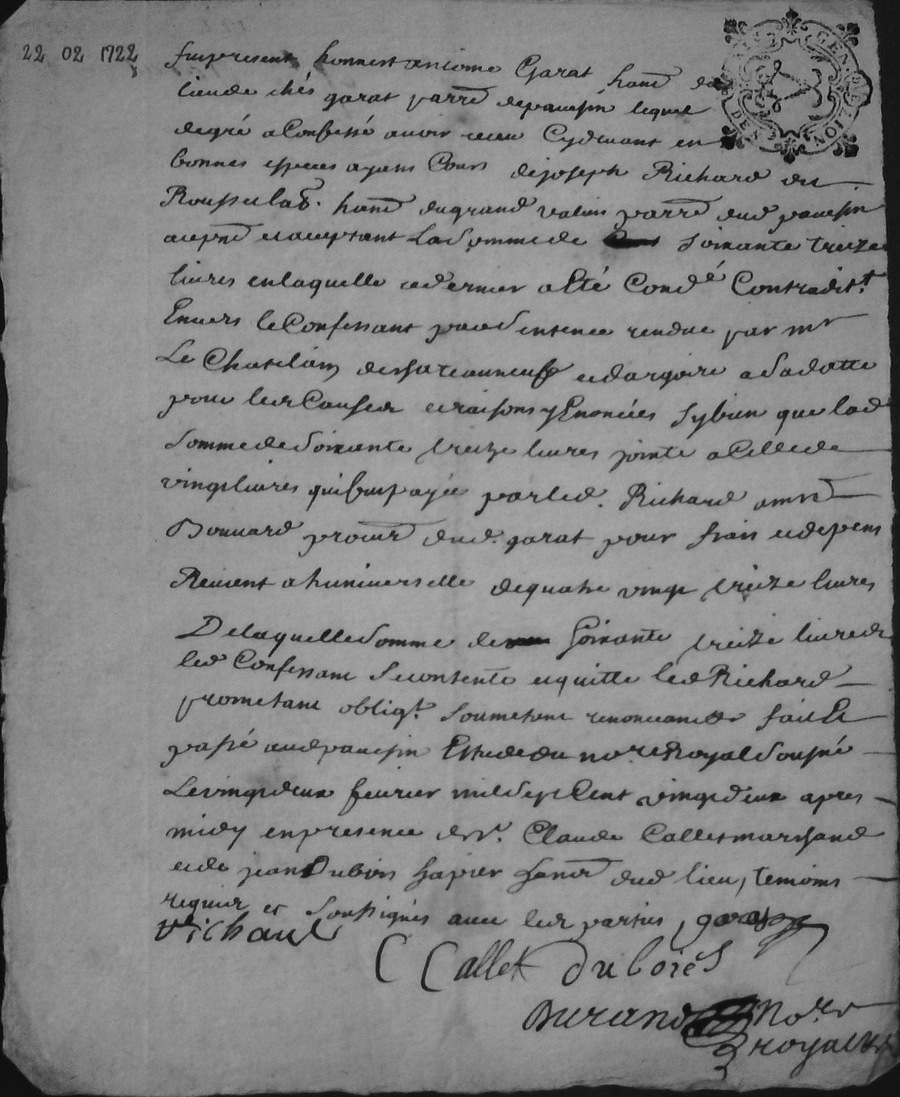 22 02 1722
fut present honnest antoine Garat hant du
lieu de chés garat parre de panesin lequel
de gré a Confessé avoir receu Cydevant en
bonnes especes ayant Cours de joseph Richard du
hant du grand parre dud panesin
acceptant La somme de soixante treize
livres en laquelle ce dernier a Eté Condé Contradict.t
Envers le Confessant par sentence rendue par mr
Le Chatelain de chateauneuf et dargoire a sa datte
pour les Causes et raisons y Enoncées sy bien que lad
somme de soixante treize livres jointe a Celle de
vingt livres qui fut payée par led. Richard a mre
Bonnard procur dud. garat pour frais et depens
Revient a luniverselle de quatre vingt treize livres
De laquelle somme de soixante treize livres
led Confessant se contente et quitte led Richard
prometant obligt. soumetant renonceant fait Et
passé aud panesin Estude du nore Royal sousné
Le vingt deux fevrier mil sept Cent vingt deux apres
midy en presence de sr. Claude Callet marchand
et de jean Dubois hant dud lieu, temoins
requis et soussignés avec les parties, garat
richard
C Callet Duboies
Durand nore
royal